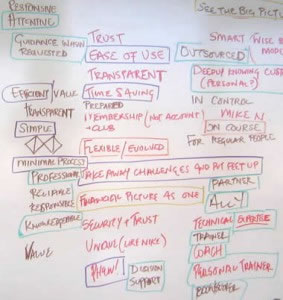 RESPONSIVE
ATTENTIVE
GUIDANCE WHEN
REQUESTED
EFFICIENT/VALUE
TRANSPARENT
SIMPLE
MINIMAL PROCESS
PROFESSIONAL
RELIABLE
RESPONSIBLE
KNOWLEDGEABLE
VALUE
TRUST
EASE OF USE
TRANSPARENT
TIME SAVING
PREPARED
MEMBERSHIP (NOT ACCOUNT)
→CLUB
FLEXIBLE/EVOLVED
TAKE AWAY CHALLENGES AND
FINANCIAL PICTURE AS ONE
SECURITY + TRUST
UNIQUE (LIKE NIKE)
DECISION
SUPPORT
SEE THE BIG PICTU
SMART
WISE
OUTSOURCED
DEEPLY KNOWING CUS
(PERSONAL?)
IN CONTROL
ON COURSE
FOR REGULAR PEOPLE
PARTNER
ALLY
TECHNICAL EXPERTISE
TRAINER
COACH
PERSONAL TRAINER